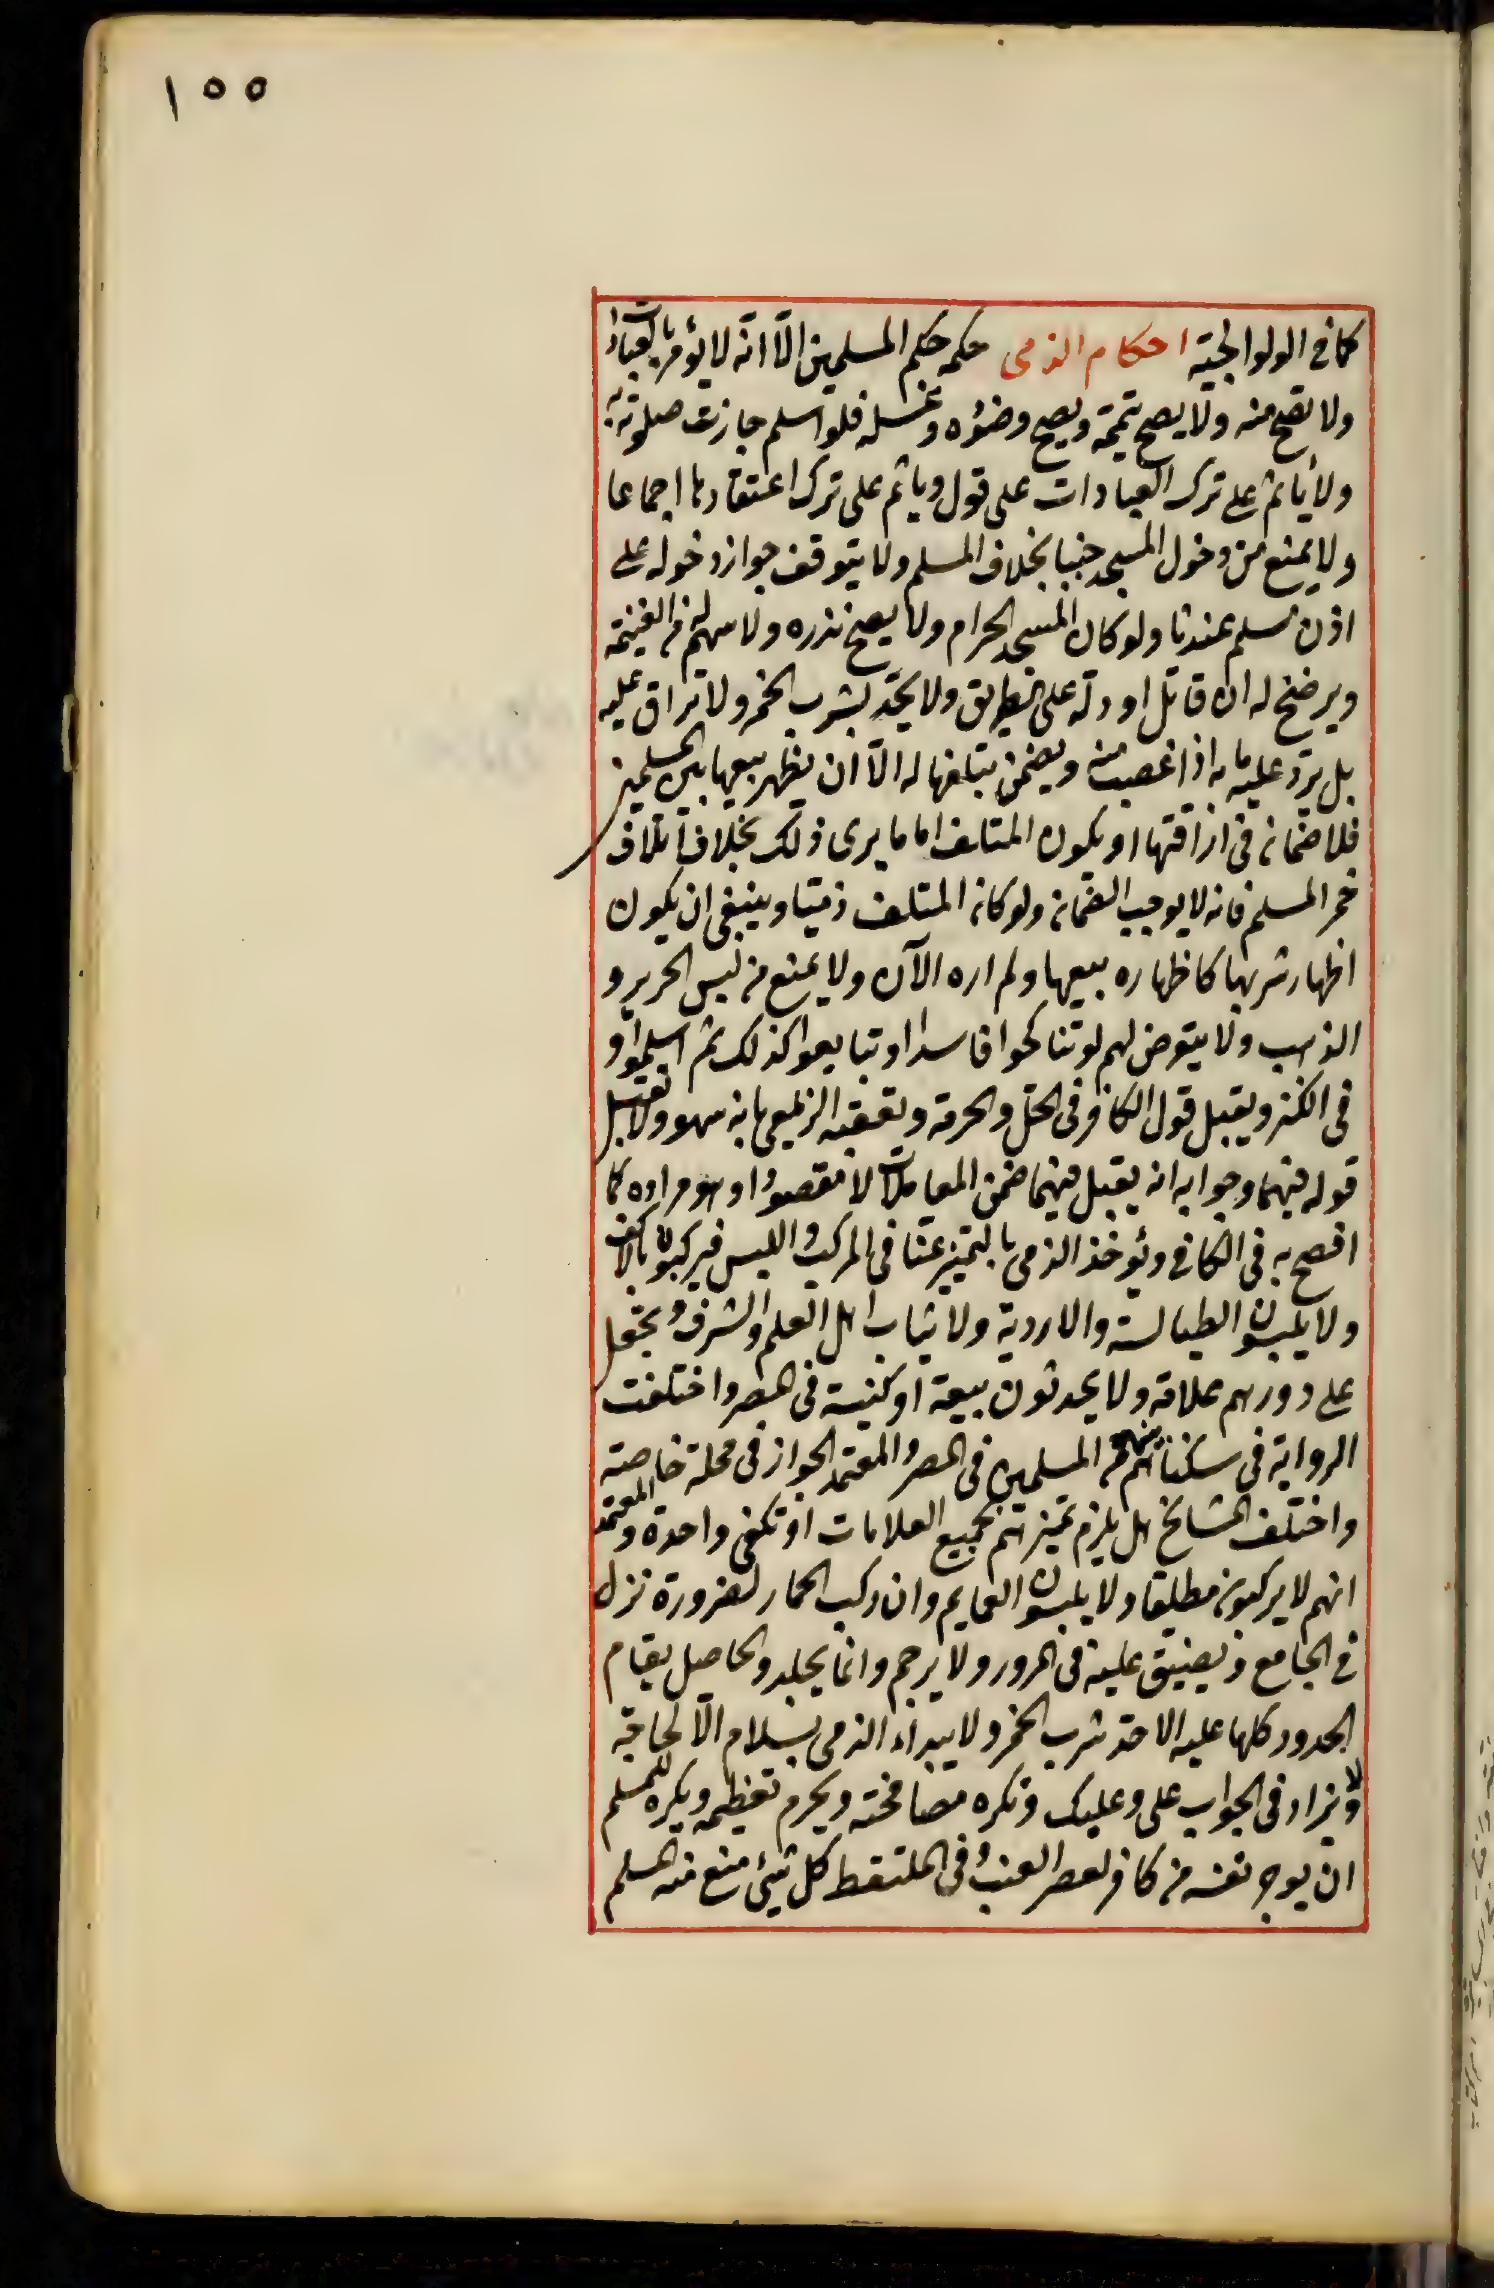 ١٥٥
كما في الولوالجية احكام الذمى حكمه حكم المسلمين الّا انّه لا يؤمر بالعبادات
ولا تصح منه ولا يصح تيممه ويصح وضوءه وغسله فلو اسلم جازت صلوته به
ولا ياثم على ترك العبادات على قول وياثم على ترك اعتقادها اجماعا
ولا يمنع من دخول المسجد جنبا بخلاف المسلم ولا يتوقف جواز دخوله على
اذن مسلم عندنا ولو كان المسجد الحرام ولا يصح نذره ولا سهم له من الغنيمة
ويرضخ له ان قاتل او دلّ على الطريق ولا يحدّ بشرب الخمر ولا تراق عليه
بل تردّ عليه اذا غصبت منه ويضمن متلفها له الّا ان يظهر بيعها بين المسلمين
فلا ضمان في اراقتها او يكون المتلف اماما يرى ذلك بخلاف اتلاف
خمر المسلم فانه لا يوجب الضمان ولو كان المتلف ذميّا وينبغى ان يكون
اظهار شربها كاظهاره بيعها ولم اره الآن ولا يمنع من لبس الحرير و
الذهب ولا يتعرض لهم لو تناكحوا فاسدا او تبايعوا كذلك ثم اسلموا و
فى الكنز ويقبل قول الكافر فى الحلّ والحرمة وتعقبه الزيلعى بانه سهو ولا تقبل
قوله فيهما وجوابه انه يقبل فيهما ضمن المعاملات لا مقصودا وهو مراده كما
افصح به فى الكافي ويؤخذ الذمى بالتميّز عنّا فى المركب والملبس فيركبون بالاكف
ولا يلبسون الطيالسة والاردية ولا ثياب اهل العلم والشرف وتجعل
على دورهم علامة ولا يحدثون بيعة او كنيسة فى المصر واختلفت
الرواية فى سكناهم بين المسلمين فى المصر والمعتمد الجواز فى محلة خاصة
واختلف المشايخ هل يلزم تميزهم بجميع العلامات او تكفى واحدة والمعتمد
انهم لا يركبون مطلقا ولا يلبسون العمايم وان ركب الحمار لضرورة نزل
في المجامع ويضيّق عليه فى المرور ولا يرجم وانما يجلد والحاصل يقام
الحدود كلها عليه الا حد شرب الخمر ولا يبدأ الذمى بسلام الّا لحاجة
ولا يزاد فى الجواب على وعليك وتكره مصافحته ويحرم تعظيمه ويكره للمسلم
ان يوجر نفسه من كافر لعصر العنب وفى الملتقط كل شئ منع منه المسلم